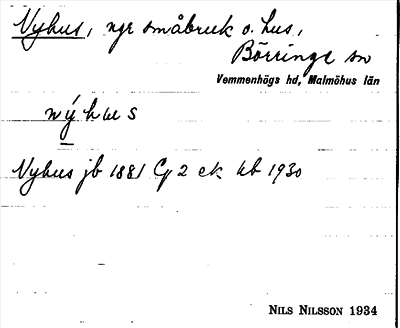 Nyhus, ngr småbruk o. hus,
Börringe sn
Vemmenhögs hd, Malmöhus län
nýhus
Nyhus jb 1881 G 2 ek kb 1930
NILS NILSSON 1934